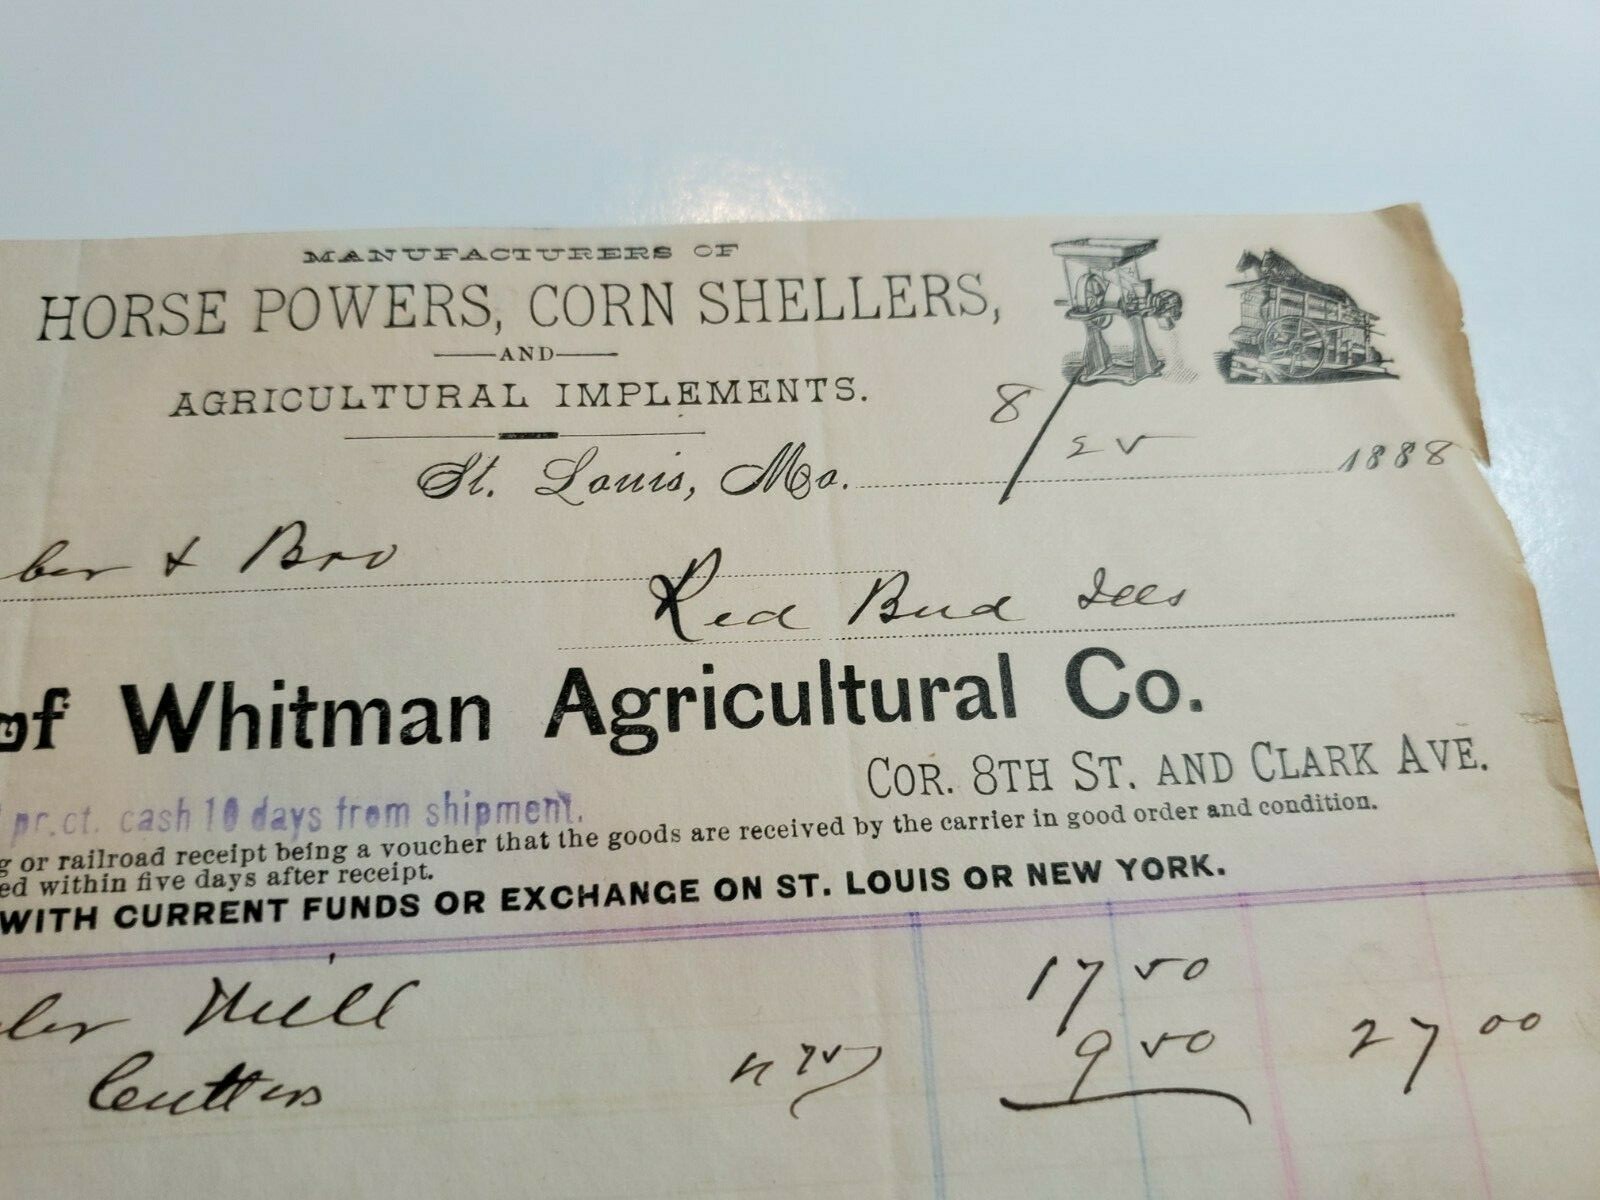 MANUFACTURERS OF
HORSE POWERS, CORN SHELLERS,
AND
AGRICULTURAL IMPLEMENTS.
St. Louis, Mo. 8/25 1888
ber & Bro
Red Bud Ills
of Whitman Agricultural Co.
COR. 8TH ST. AND CLARK AVE.
pr.ct. cash 10 days from shipment.
g or railroad receipt being a voucher that the goods are received by the carrier in good order and condition.
ed within five days after receipt.
WITH CURRENT FUNDS OR EXCHANGE ON ST. LOUIS OR NEW YORK.
der Mill 17 50
Cutters 9 50 27 00